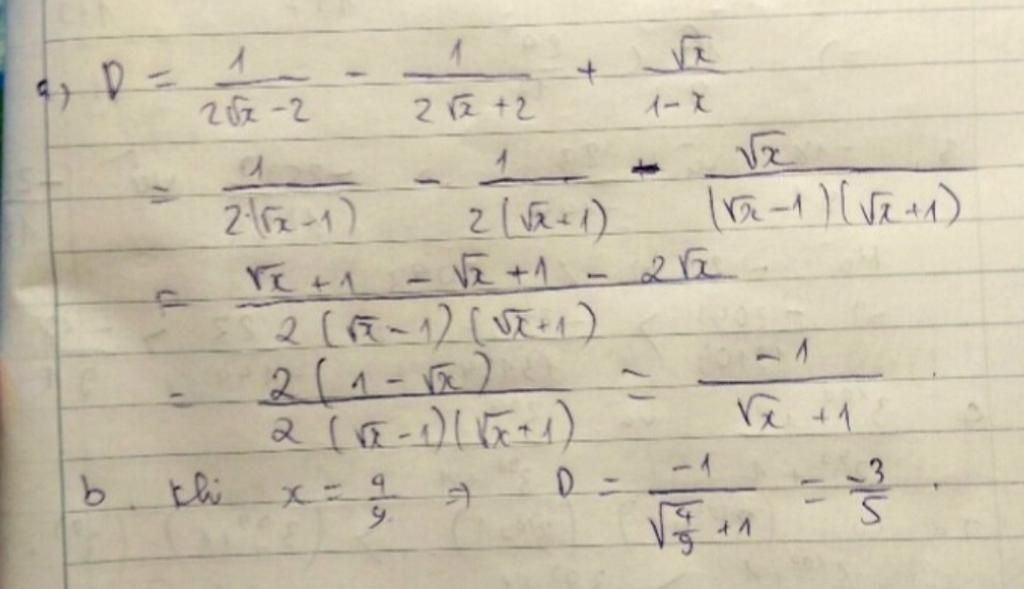 a, D = 1/(2√x - 2) - 1/(2√x + 2) + √x/(1 - x)
= 1/(2(√x - 1)) - 1/(2(√x + 1)) - √x/((√x - 1)(√x + 1))
= (√x + 1 - √x + 1 - 2√x)/(2(√x - 1)(√x + 1))
= 2(1 - √x)/(2(√x - 1)(√x + 1)) = -1/(√x + 1).
b. khi x = 4/9 ⇒ D = -1/(√(4/9) + 1) = -3/5.